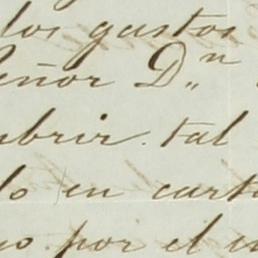 los gustos
eñor Dn
ubrir. tal
do en carta
no por el